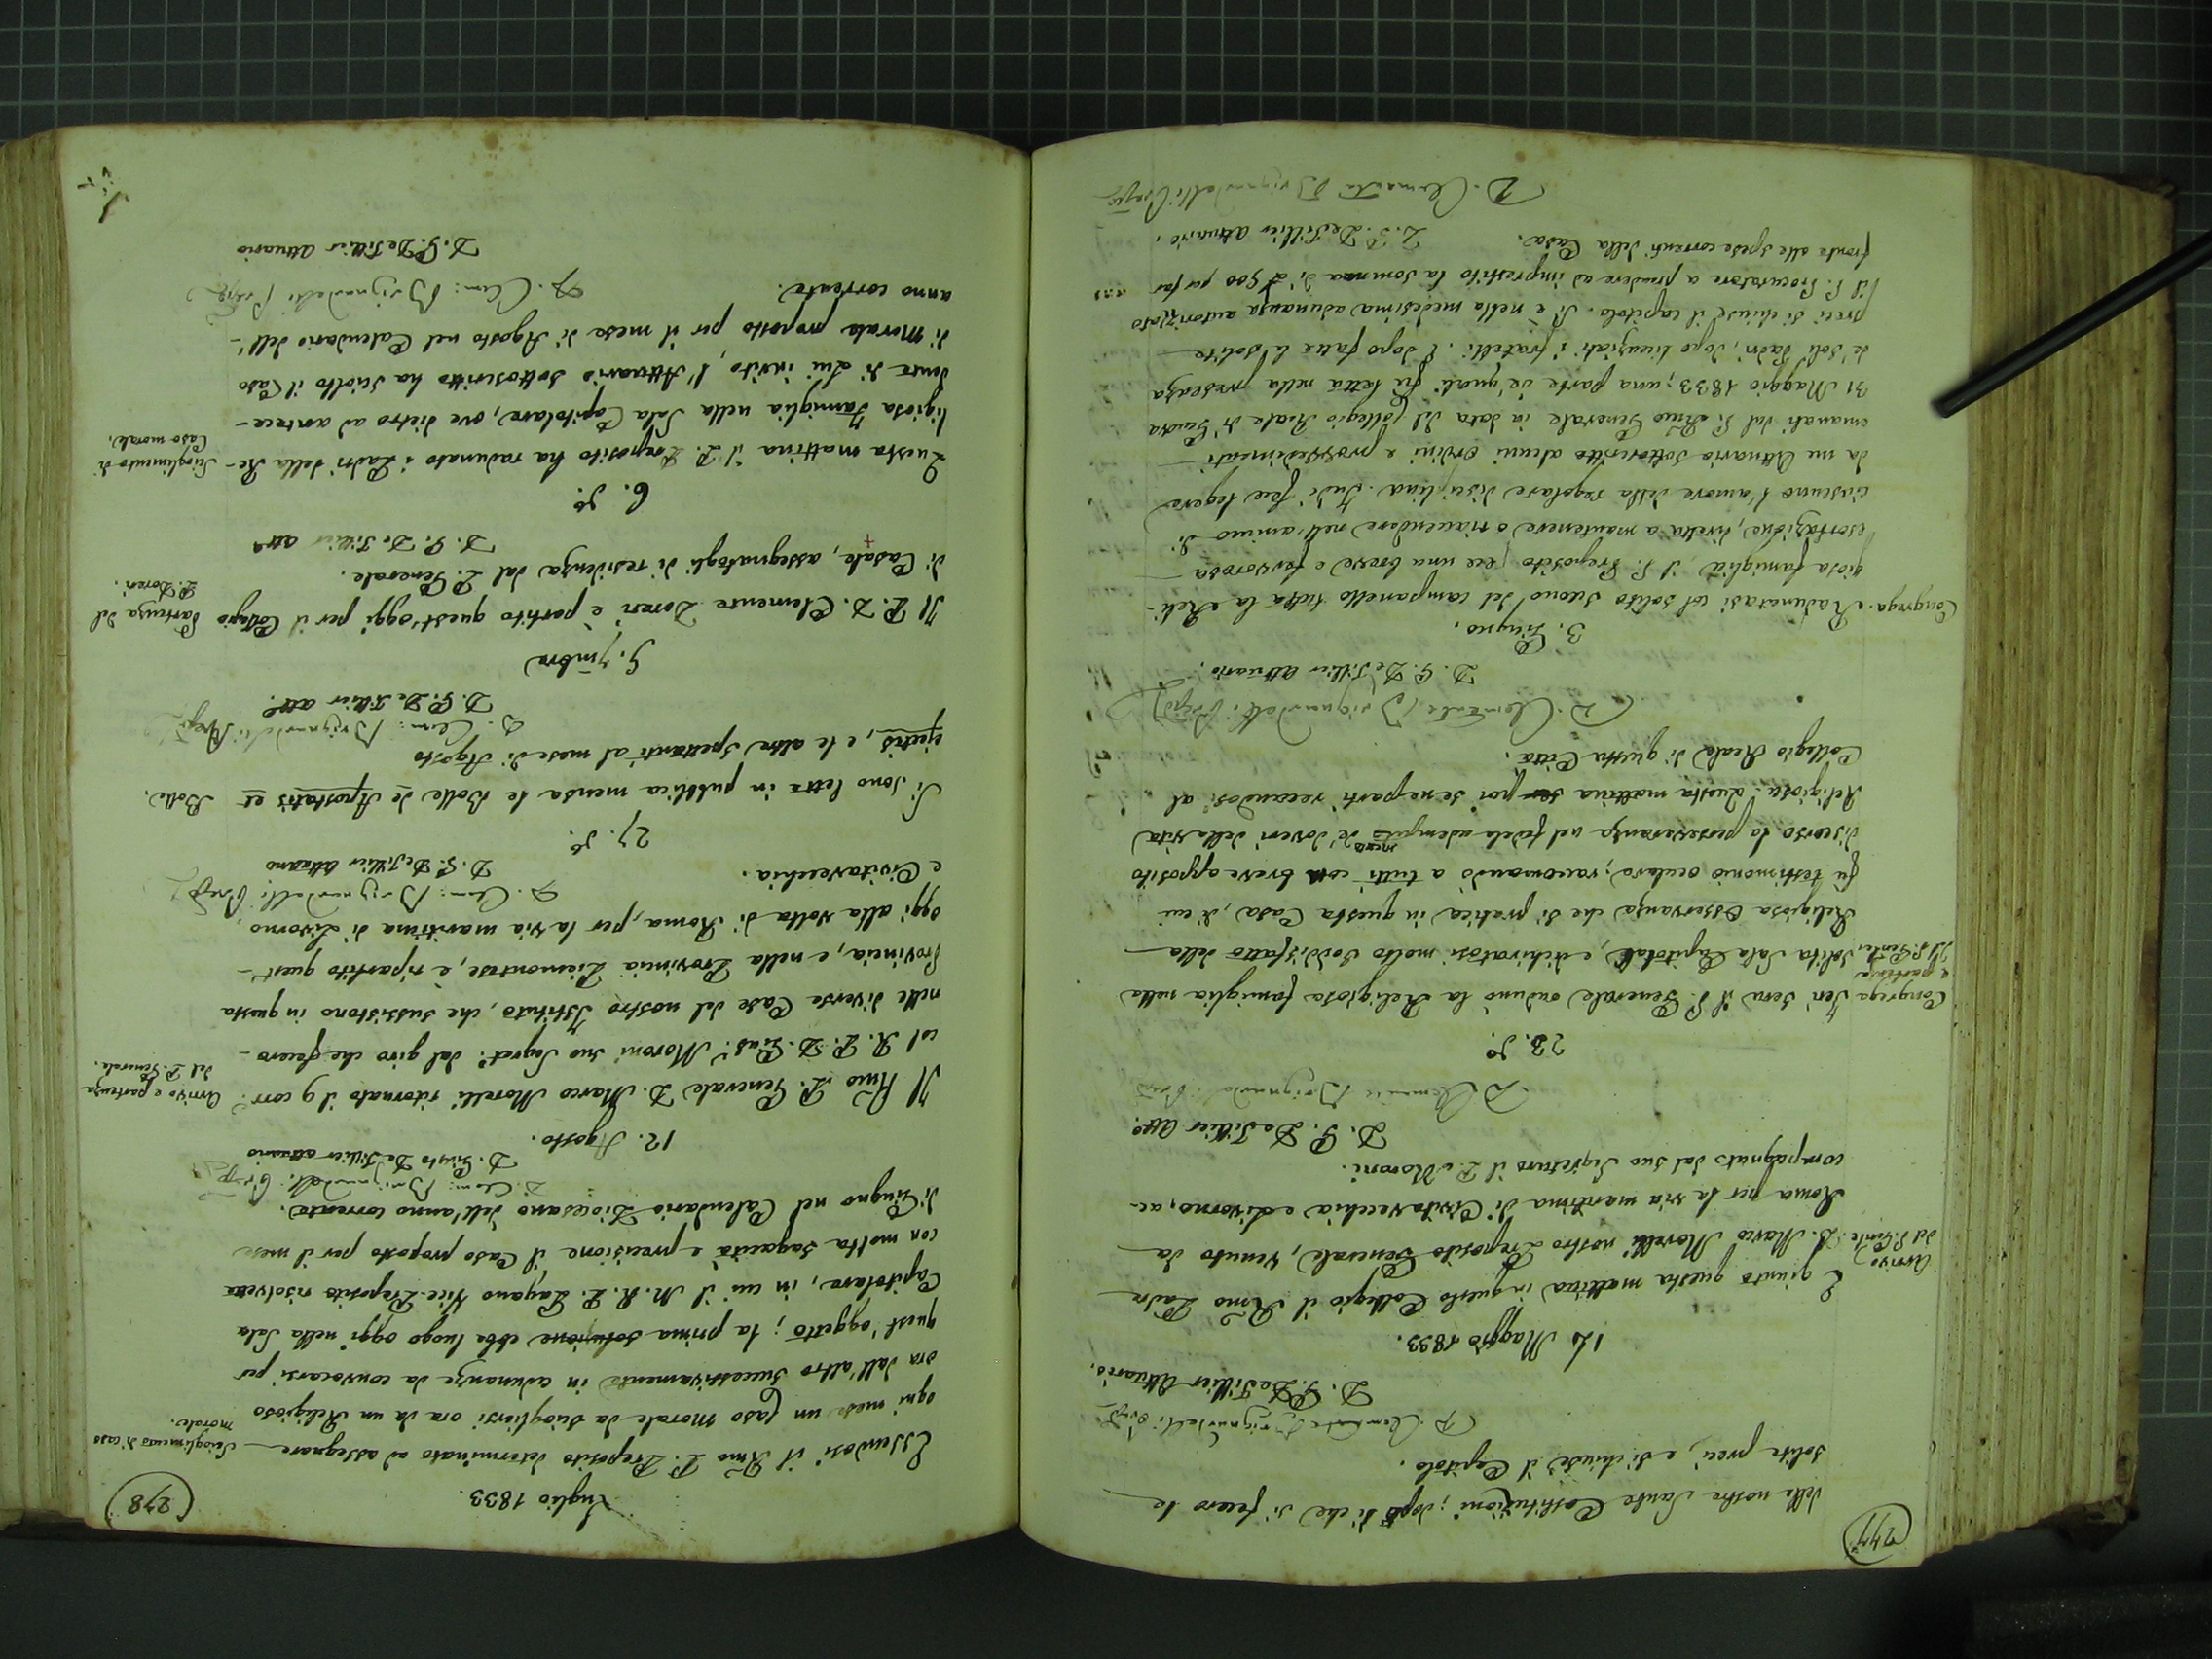 (277)
delle nostre Sante Costituzioni; dopo di che si fecero le
solite preci, e si chiuse il Capitolo.
D. Clemente Brignardelli Prepto
D. G. DeTillier Attuario.
16 Maggio 1833.
Arrivo
del P. Gnle.
È giunto questa mattina in questo Collegio il Rmo Padre
D. Marco Morelli nostro Preposito Generale, venuto da
Roma per la via marittima di Civitavecchia e Livorno, ac-
compagnato dal suo Segretario il P. Moroni.
D. G. DeTillier Atto.
D Clemente Brignardelli
23. do.
Congrega
e partenza
del P. Gnle.
Jeri sera il P. Generale radunò la Religiosa famiglia nella
solita Sala Capitolale, e dichiaratosi molto soddisfatto della
Religiosa Osservanza che si pratica in questa Casa, di cui
fù testimonio oculare; raccomandò a tutti con breve apposito
discorso la perseveranza nel fedele adempimento de' doveri della vita
Religiosa. Questa mattina poi se ne partì recandosi al
Collegio Reale di questa Città.
D. Clemente Brignardelli Prepto
D. G. DeTillier Attuario.
3. Giugno.
Congrega.
Radunatasi col solito suono del campanello tutta la Reli-
giosa famiglia, il P. Preposito fece una breve e fervorosa
esortazione, diretta a mantenere o riaccendere nell'animo di
ciascuno l'amore della regolare disciplina. Indi fece leggere
da me Attuario sottoscritto alcuni ordini e provvedimenti
emanati dal P. Rmo Generale in data del Collegio Reale di Genova
31 Maggio 1833; una parte de' quali fù letta nella presenza
de' soli Padri, dopo licenziati i fratelli. E dopo fatte le solite
preci si chiuse il capitolo. Si è nella medesima adunanza autorizzato
il P. Procuratore a prendere ad imprestito la somma di 500 per far
fronte alle spese correnti della Casa.
D. G. DeTillier Attuario.
D. Clemente Brignardelli Prepto
(278)
Luglio 1833.
Scioglimento di caso
morale.
Essendosi il Rmo P. Preposito determinato ad assegnare
ogni mese un Caso morale da sciogliersi ora da un Religioso
ora dall'altro successivamente in adunanze da convocarsi per
quest'oggetto; la prima soluzione ebbe luogo oggi nella Sala
Capitolare, in cui il M. R. P. Pagano Vice-Preposito risolvette
con molta sagacità e precisione il Caso proposto per il mese
di Giugno nel Calendario Diocesano dell'anno corrente.
D. Clem: Brignardelli Prepto
D. Giusto DeTillier attuario
12. Agosto.
Arrivo e partenza
del P. Generale.
Il Rmo P. Generale D. Marco Morelli ritornato il 9 corr.
col R. P. D. Moroni suo Segret.o dal giro che fecero
nelle diverse Case del nostro Istituto, che sussistono in questa
Provincia, e nella Provincia Piemontese, è ripartito quest'-
oggi alla volta di Roma, per la via marittima di Livorno
e Civitavecchia.
D. Clem: Brignardelli Prepto
D. G. DeTillier Attuario
27. do.
Bolle.
Si sono lette in pubblica mensa le Bolle de Apostatis et
ejectis, e le altre spettanti al mese di Agosto
D. Clem: Brignardelli Prepto
D. G. DeTillier atto.
5. 7mbre
Partenza del
P. Doreri.
Il P. D. Clemente Doreri è partito quest'oggi per il Collegio
di Casale, assegnatogli di residenza dal P. Generale.
D. G. DeTillier atto
6. do.
Scioglimento di
Caso morale.
Questa mattina il P. Preposito ha radunato i Padri della Re-
ligiosa Famiglia nella Sala Capitolare, ove dietro ad antece-
dente di Lui invito, l'Attuario sottoscritto ha sciolto il Caso
di Morale proposto per il mese di Agosto nel Calendario dell'-
anno corrente.
D. Clem: Brignardelli Prepto
D. G. DeTillier Attuario